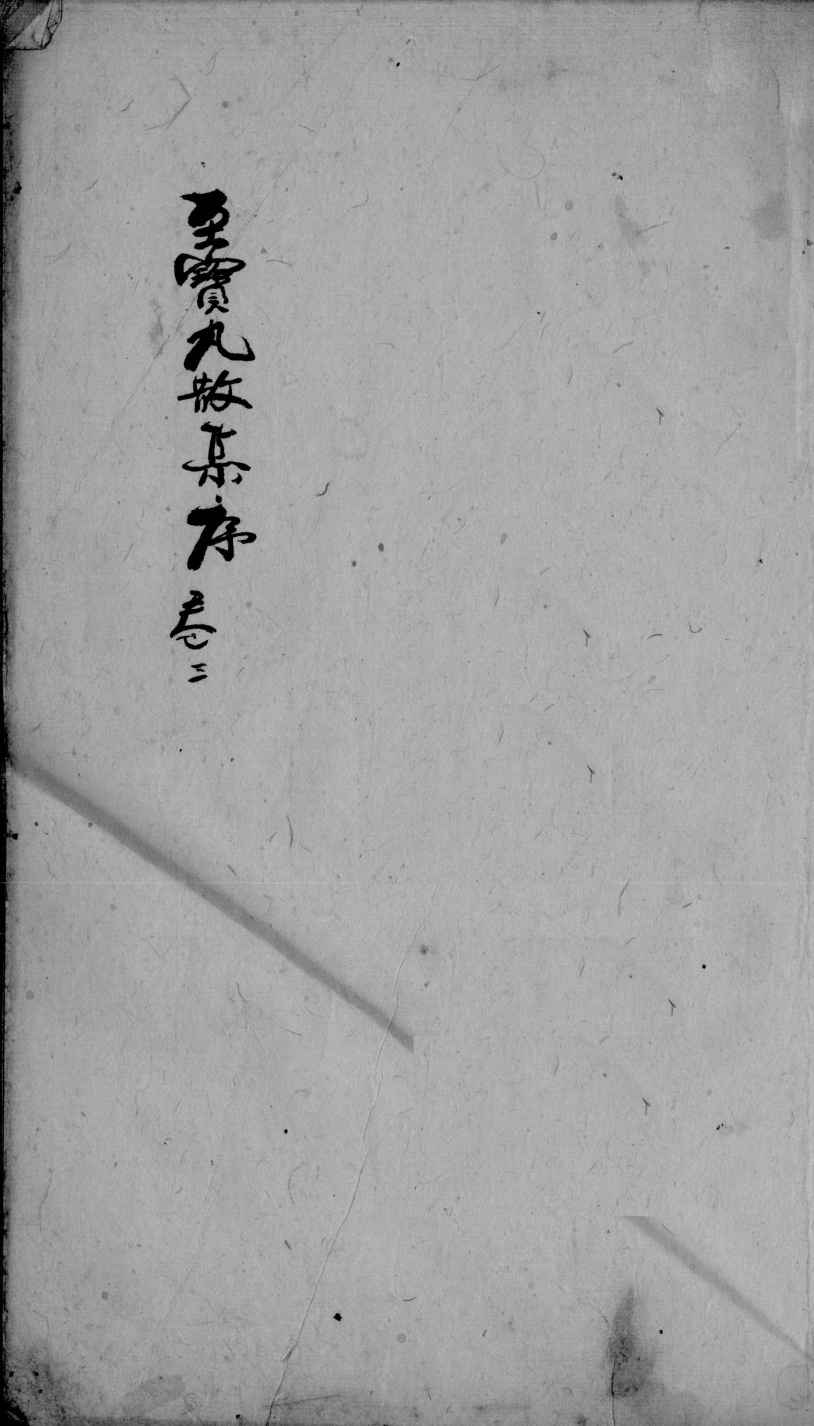 至寶丸散集序 卷三